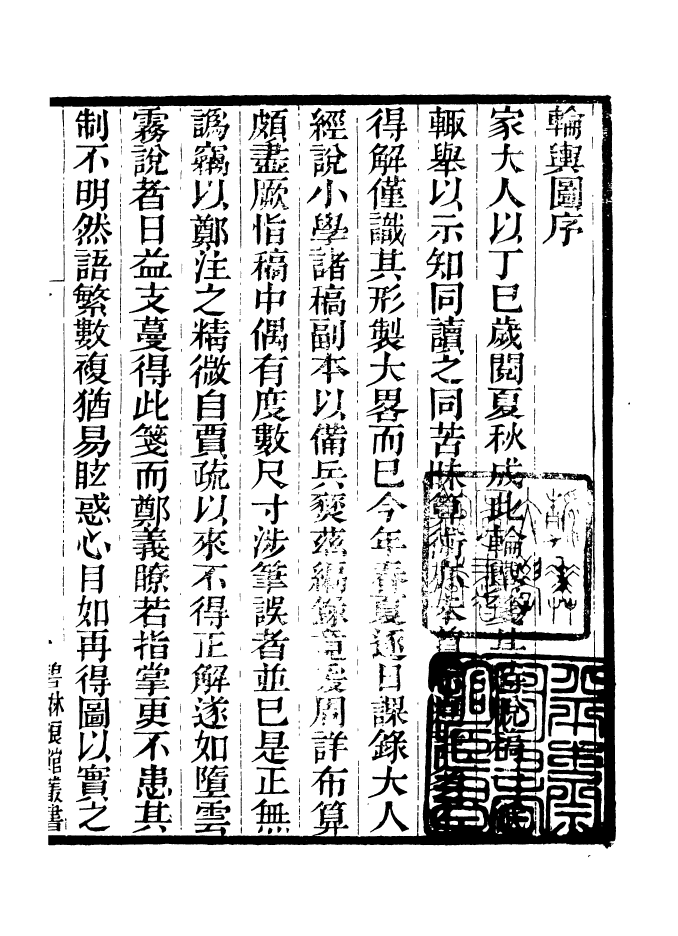 輪輿圖序
家大人以丁巳歲閱夏秋成此輪輿箋其說稿
輙舉以示知同讀之同苦昧算術亦
得解僅識其形製大畧而巳今年春夏逐日課錄大人
經說小學諸稿副本以備兵燹茲編錄竟爰周詳布算
頗盡厥恉稿中偶有度數尺寸涉筆誤者並巳是正無
譌竊以鄭注之精微自賈疏以來不得正解遂如墮雲
霧說者日益支蔓得此箋而鄭義瞭若指掌更不患其
制不明然語繁數複猶易眩惑心目如再得圖以實之
一
碧琳琅館叢書